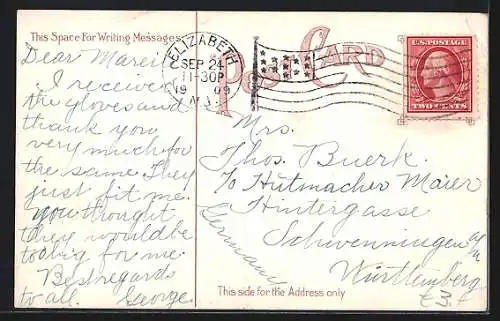 This Space For Writing Messages
Post Card
ELIZABETH
SEP 24
11-30P
1909
N.J.
U.S. POSTAGE
TWO CENTS
Dear Marei
I receive
the gloves and
thank you
very much for
the same. They
just fit me.
You thought
they would be
to big for me.
Best regards
to all. George
Mrs.
Thos. Buerk.
c/o Hutmacher Maier
Hintergasse
Schwenningen a/n
Württemberg
Germany
This side for the Address only